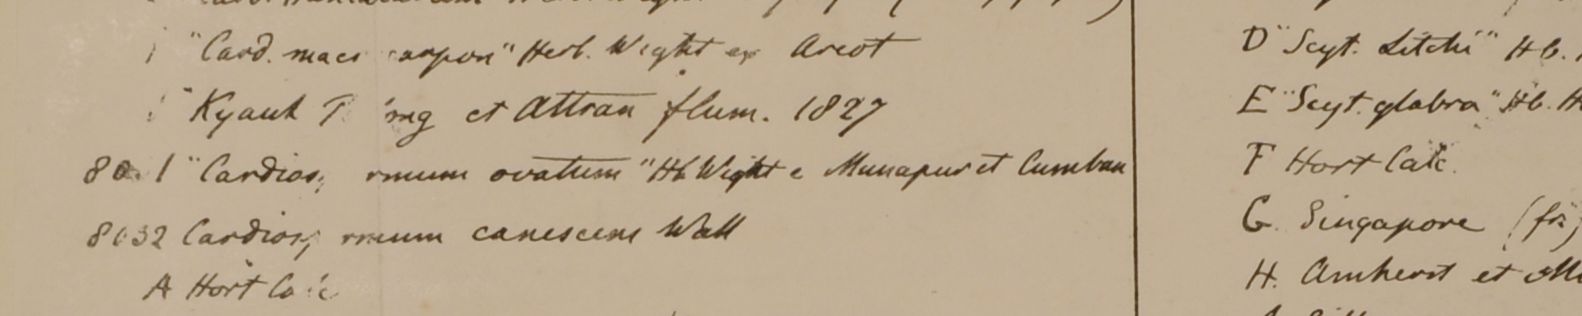 "Card. macr carpon" Herb. Wight ex Arcot
"Kyauk et Attran flum. 1827
"Cardios rmum ovatum" Hb Wight e Munapur et Cumbau
8032 Cardiosp rmum canescens Wall
A Hort Calc
D "Scyt. Litchi" Hb.
E "Scyt. glabra" Hb.
F Hort Calc.
G. Singapore (fr)
H. Amherst et